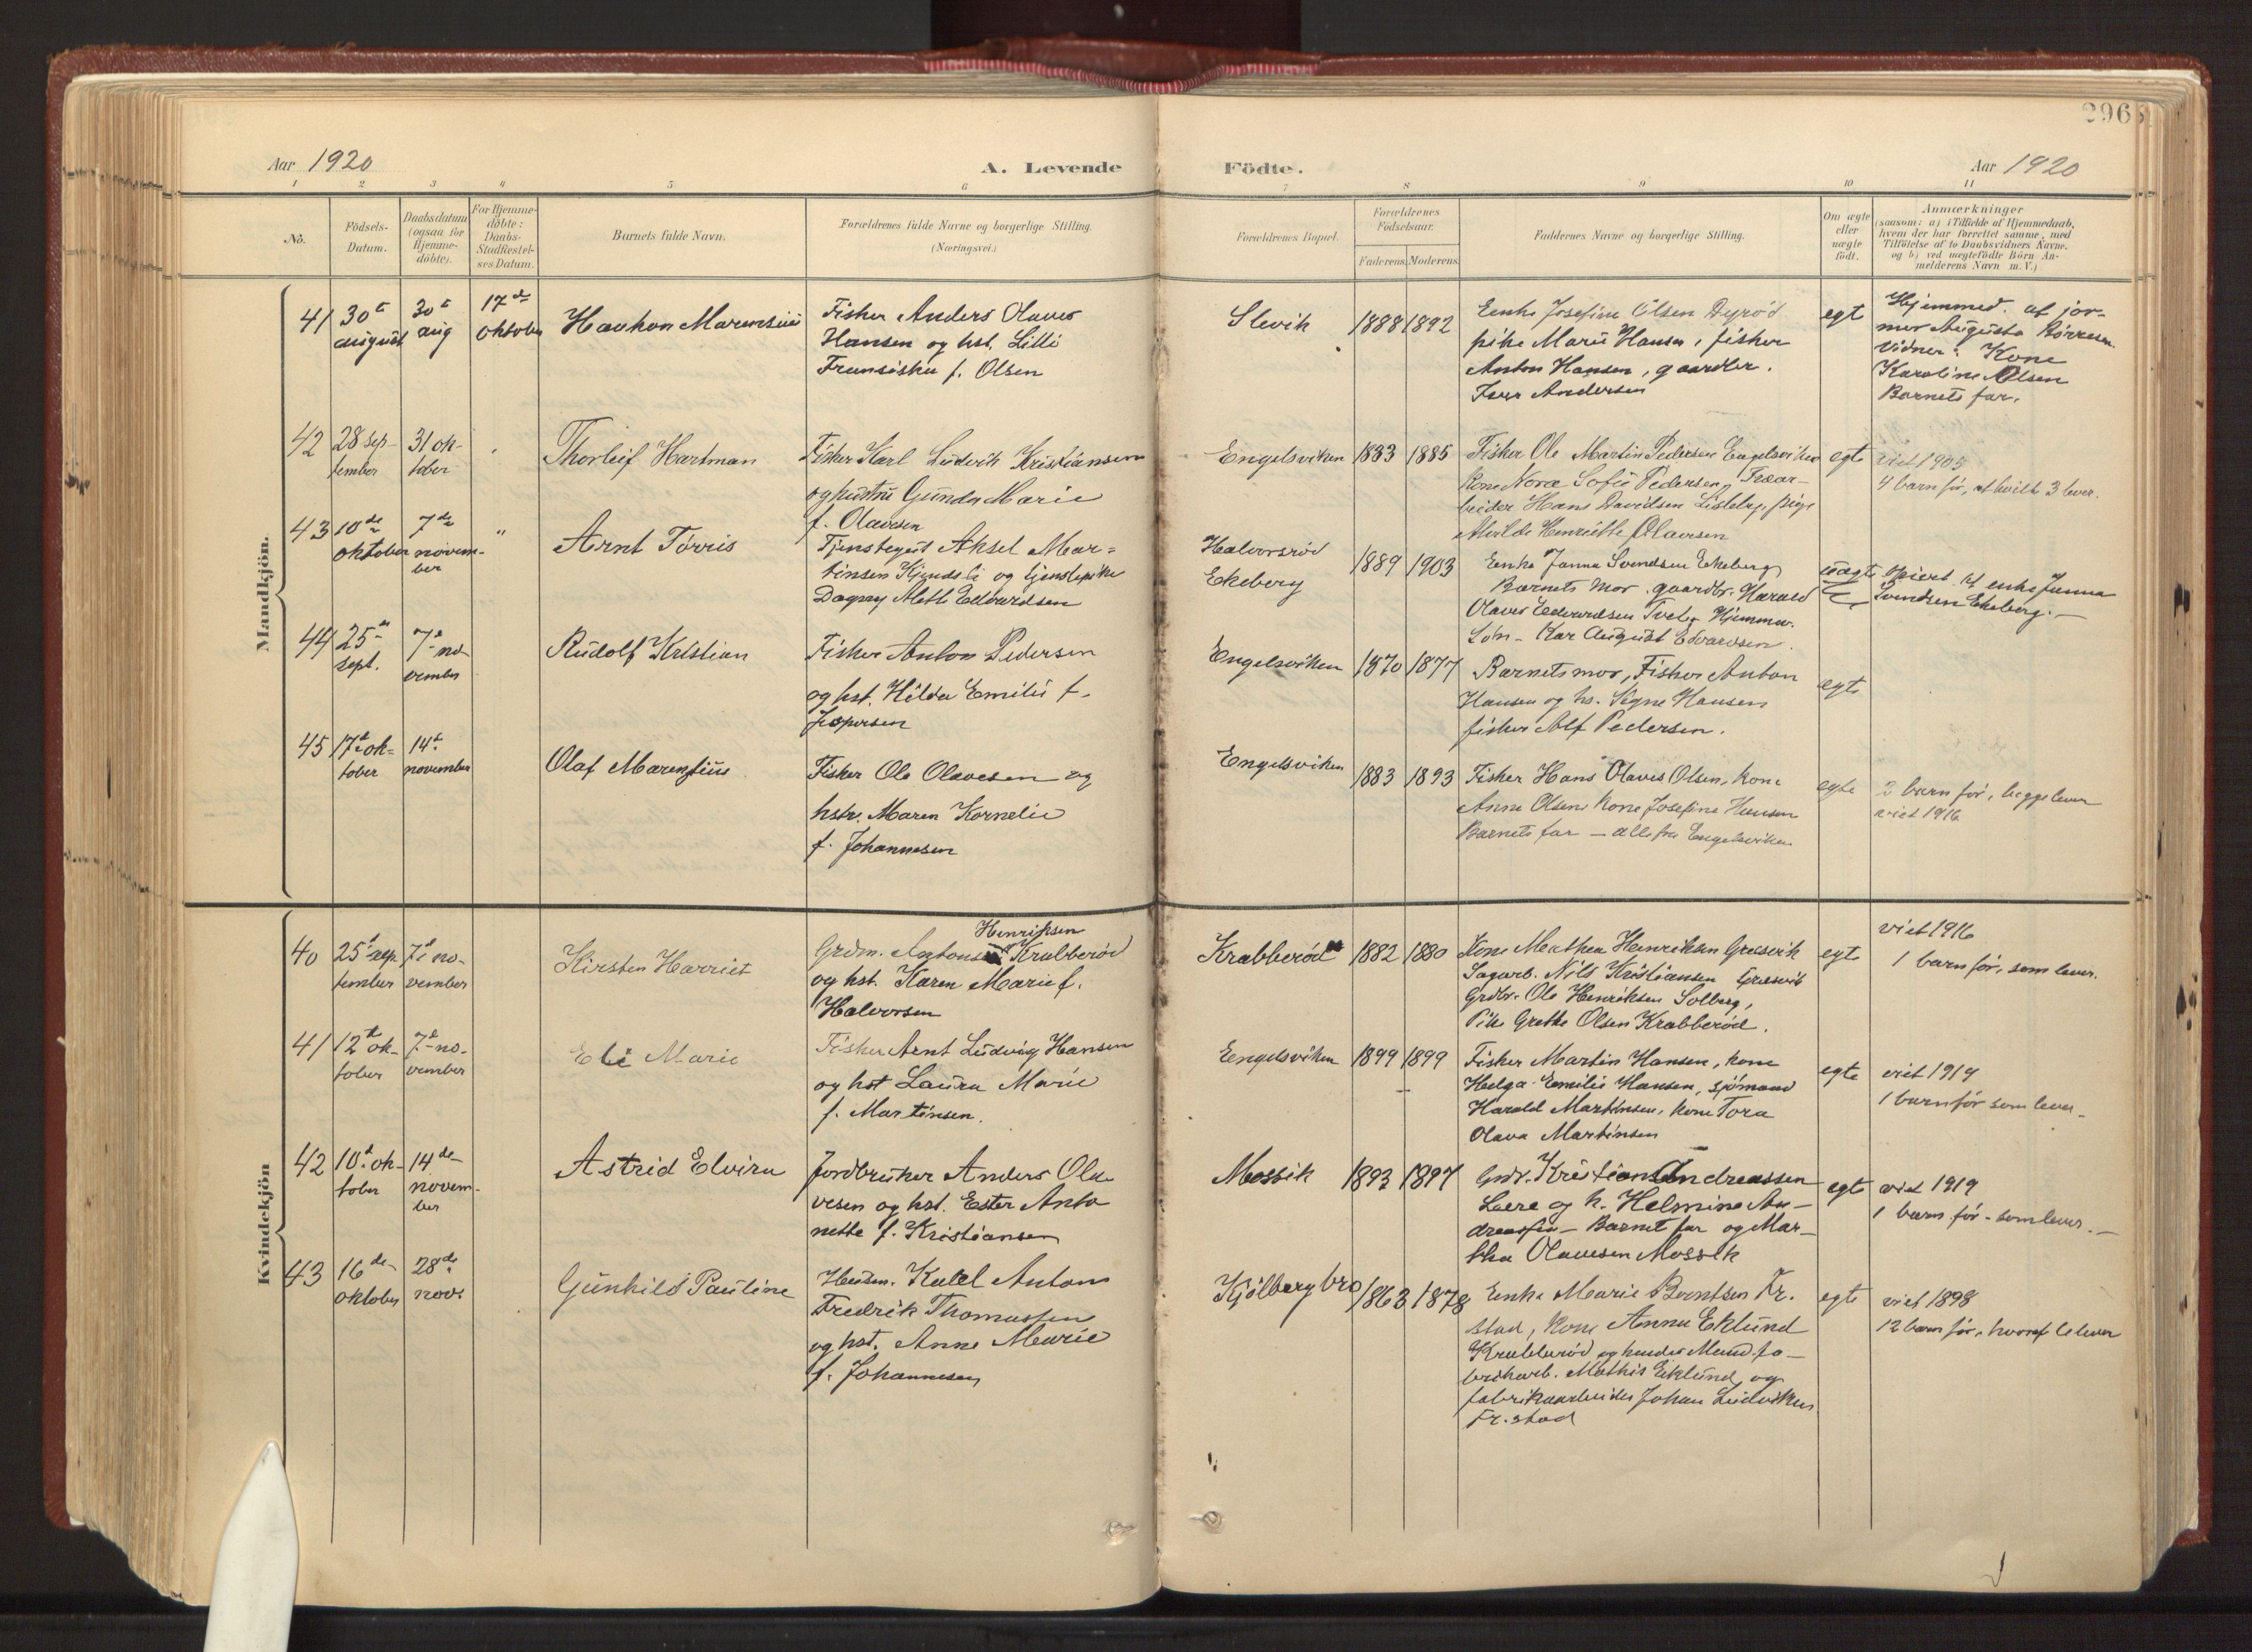 296
Aar 1920
A. Levende
Födte.
Aar 1920
1 2 3 4 5 6 7 8 9 10 11
No.
Födsels-
Datum.
Daabsdatum
(ogsaa for
Hjemme-
döbte).
For Hjemme-
döbte:
Daabs-
Stadfestel-
ses Datum.
Barnets fulde Navn.
Forældrenes fulde Navne og borgerlige Stilling.
(Næringsvei.)
Forældrenes Bopæl.
Forældrenes
Födselsaar.
Faderens. Moderens.
Faddernes Navne og borgerlige Stilling.
Om ægte
eller
uægte
födt.
Anmærkninger
(saasom: a) i Tilfælde af Hjemmedaab,
hvem der har forrettet samme, med
Tilföielse af to Daabsvidners Navne.
og b) ved uægtefödte Börn An-
melderens Navn m. V.)
Mandkjön.
41
30t
august
30t
aug
17de
oktober
Haakon
Fisher Anders Olaves
Hansen og hst. Lilli
Fransiska f. Olsen
Slevik
1888 1892
Enke Josefine Olsen Dyrød
pike Marie Hansen, fisker
Anton Hansen, gaardbr.
Iver Andersen
egt
Hjemmed. af jor-
mor Augusta Børresen.
Vidner: Kone
Karoline Olsen
Barnets far.
42
28 sep-
tember
31 ok-
tober
Thorleif Hartman
Fisker Karl Ludvik Kristiansen
og hustru Gunda Marie
f. Olavesen
Engelsviken
1883 1885
Fisker Ole Martin Pedersen Engelsviken
Kone Nora Sofie Pedersen, Træar-
beider Hans Davidsen Lisleby, pige
Alvilde Henriette Olavesen
egte
viet 1905
4 barn før, af hvilke 3 lever.
43
10de
oktober
7de
novem-
ber
"
Arnt Torris
Tjenstegut Aksel Mar-
tinsen Kjendsli og tjenstepike
Dagny Aleth Edvardsen
Halvorsrød
Ekeberg
1889 1903
Enke Janna Svendsen Ekeberg
Barnets mor, gaardbr. Harald
Olaves Edvardsen Tvete, Hjemmev.
Søn - Kar August Edvardsen
uægte
af enke Janna
Svendsen Ekeberg. -
44
25de
sept.
7de no-
vember
Rudolf Kristian
Fisker Anton Pedersen
og hst. Hilda Emilie f.
Jespersen
Engelsviken
1870 1877
Barnets mor, Fisker Anton
Hansen og hs. Signe Hansen
fisker Alf Pedersen.
egte
45
17de ok-
tober
14de
november
Olaf Marensius
Fisker Ole Olavesen og
hstr. Maren Kornelie
f. Johannesen
Engelsviken
1883 1893
Fisker Hans Olaves Olsen, kone
Anne Olsen, Kone Josefine Hansen
Barnets far - alle fra Engelsviken
egte
2 barn før, begge lever
viet 1916
Kvindekjön
40
25de sep
tember
7de no-
vember
Kirsten Harriet
Henriksen
Grdm. Anton Krabberød
og hst. Karen Marie f.
Halvorsen
Krabberød
1882 1880
Kone Mathea Henriksen Gresvik
Sagarb. Nils Kristiansen Gresvik
Grdbr. Ole Henriksen Solberg,
Pike Grethe Olsen Krabberød.
egte
viet 1916
1 barn før, som lever.
41
12te ok-
tober
7de no-
vember
Eli Marie
Fisker Arnt Ludvig Hansen
og hst Laura Marie
f. Martinsen.
Engelsviken
1899 1899
Fisker Martin Hansen, kone
Helga Emilie Hansen, sjømand
Harald Martinsen, kone Tora
Olava Martinsen
egte
viet 1919
1 barn før som lever -
42
10de ok-
tober
14de
novem-
ber
Astrid Elvira
Jordbruker Anders Ola-
vesen og hst. Ester Anto
nette f. Kristiansen
Mossik
1893 1897
Grdr. Kristian Andreassen
Lere og h. Helmine An-
dreassen - Barnet far og Mar-
tha Olavesen Mossik
egte
viet 1919
1 barn før - som lever. -
43
16de
oktober
28de
nov.
Gunhild Pauline
Husm. Kalel Anton
Fredrik Thomassen
og hst. Anne Marie
f. Johannesen
Kjölberg bro
1863 1878
Enke Marie Berntsen Fr.
stad, Kone Anna Eklund
Krabberød og hendes Mand fa-
brikarb. Mathis Eklund og
fabrikaarbeider Johan Ludviksen
Fr.stad
egte
viet 1898
12 barn før, hvoraf lever